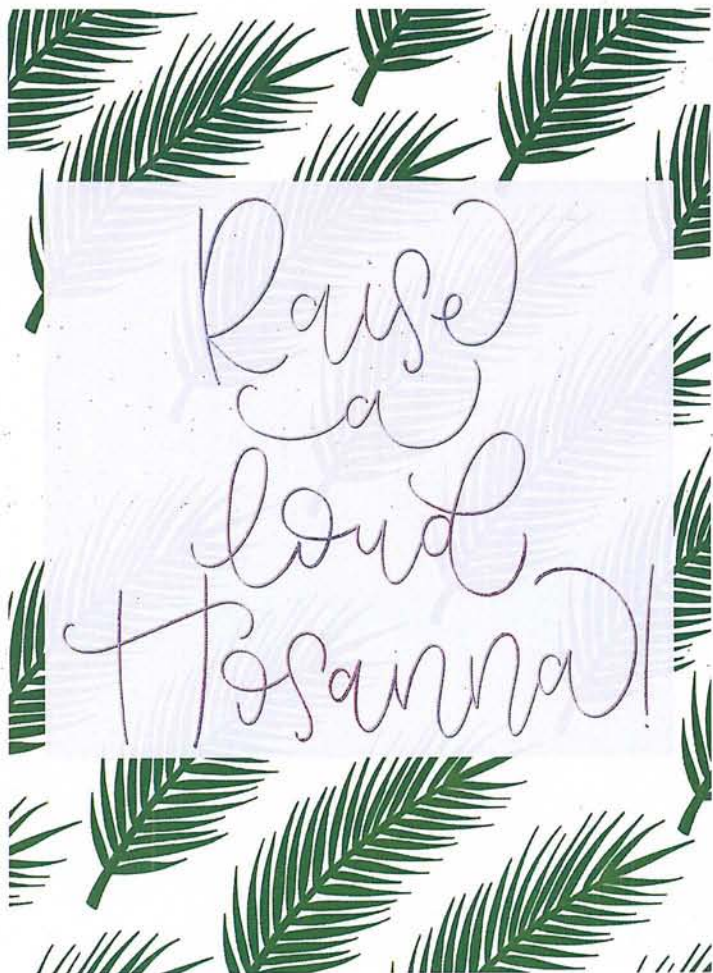 Raise
a
loud
Hosanna!